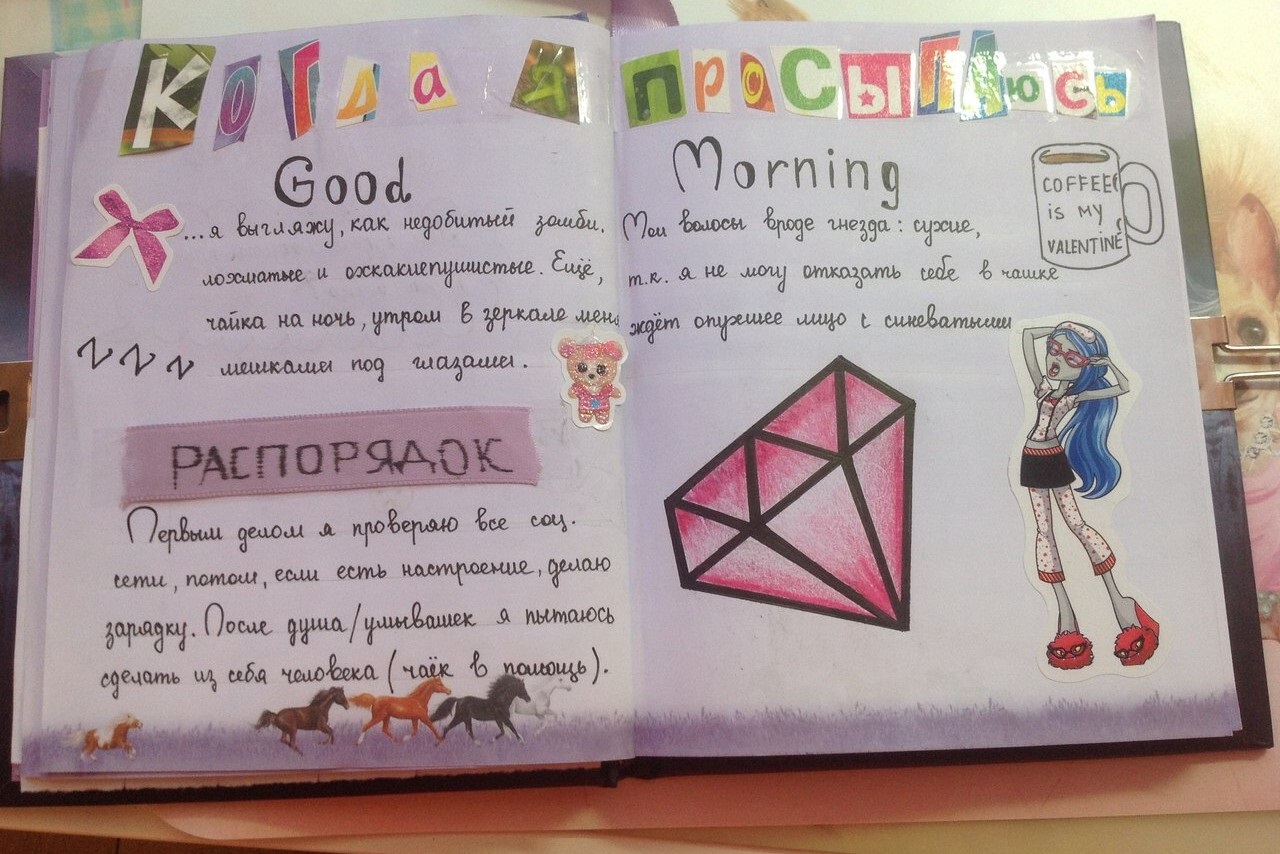 Когда я просыпаюсь
Good Morning
...я выгляжу, как недобитый зомби. Мои волосы вроде гнезда: сухие,
лохматые и охкакиепушистые. Ещё, т.к. я не могу отказать себе в чашке
чайка на ночь, утром в зеркале меня ждёт опухшее лицо с синеватыми
мешками под глазами.
ZZZ
COFFEE
is MY
VALENTINE
РАСПОРЯДОК
Первым делом я проверяю все соц.
сети, потом, если есть настроение, делаю
зарядку. После душа/умывашек я пытаюсь
сделать из себя человека (чаёк в помощь).